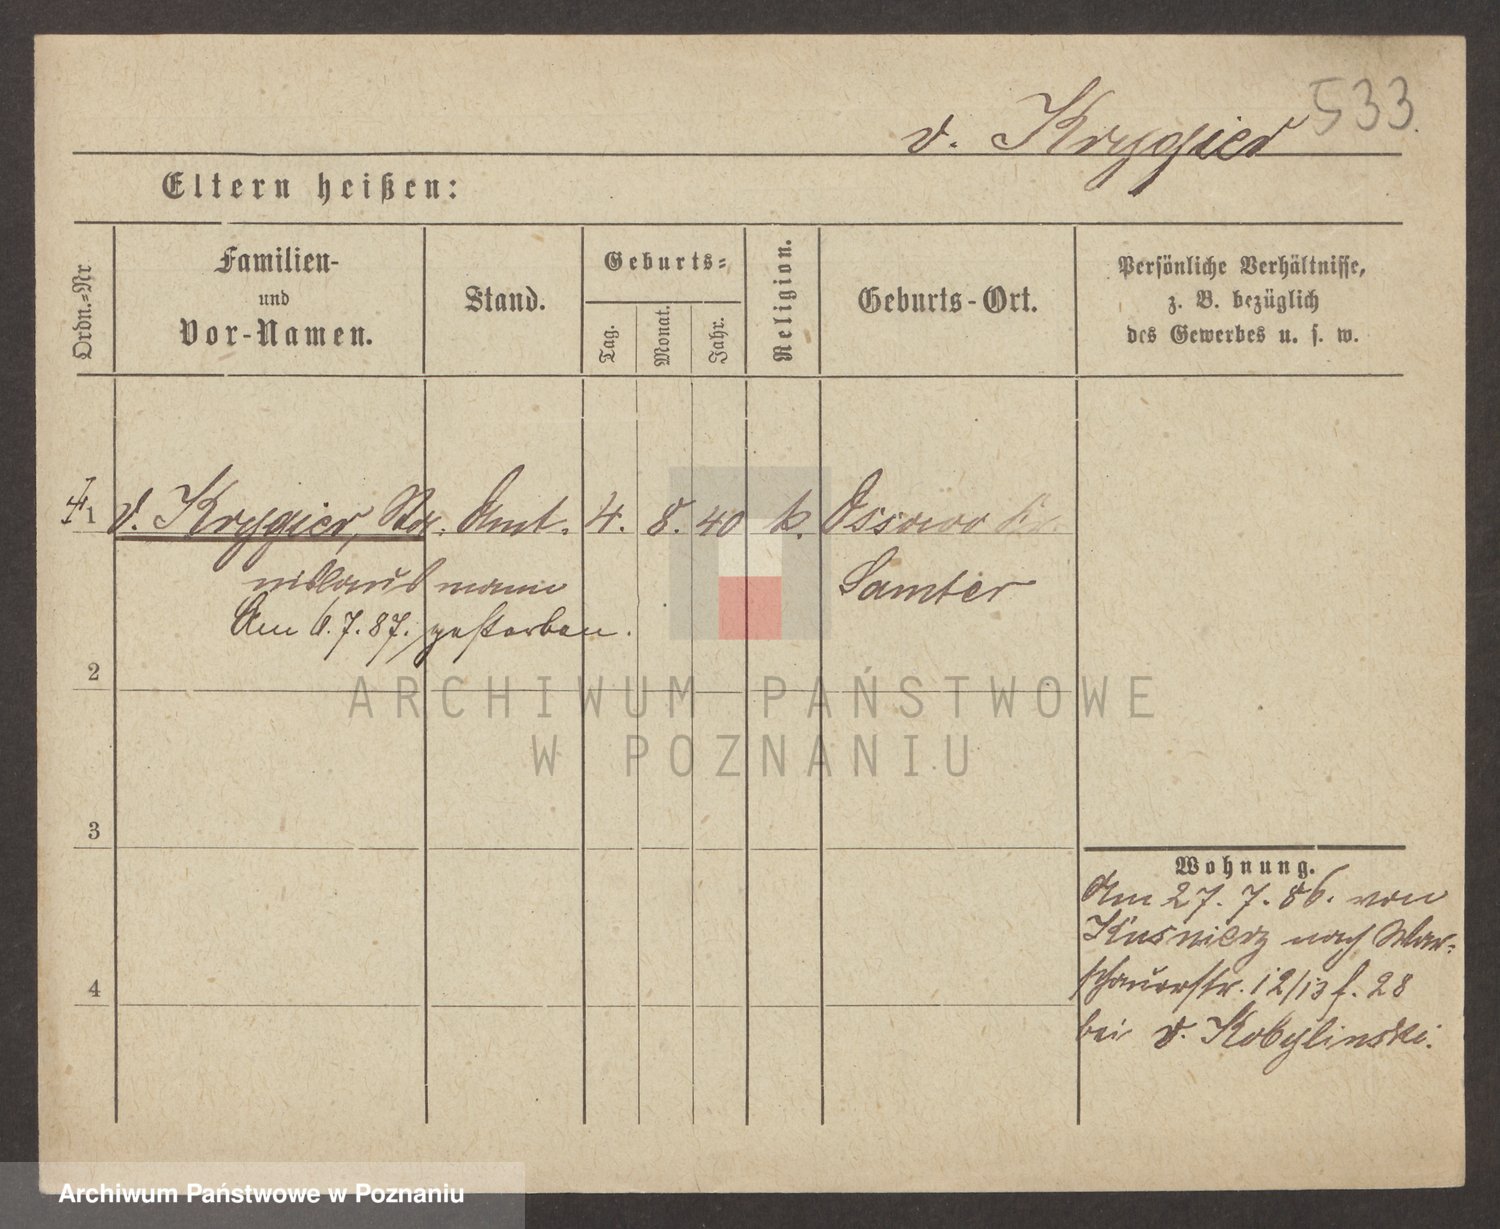 533.
v. Krygier
Eltern heißen:
Ordn.=Nr
Familien-
und
Vor-Namen.
Stand.
Geburts=
Tag.
Monat.
Jahr.
Religion.
Geburts-Ort.
Persönliche Verhältnisse,
z. B. bezüglich
des Gewerbes u. s. w.
1 v. Krygier, Sta- Amt- 4. 8. 40 k. Ossowo Kr.
nislaus mann Samter
Am 6.7.87. gestorben.
2
ARCHIWUM PAŃSTWOWE
W POZNANIU
3
Wohnung.
Am 27. 7. 86. von
Kusnierz nach War-
schauerstr. 12/13 f. 28
4
bei v. Kobylinski.
Archiwum Państwowe w Poznaniu